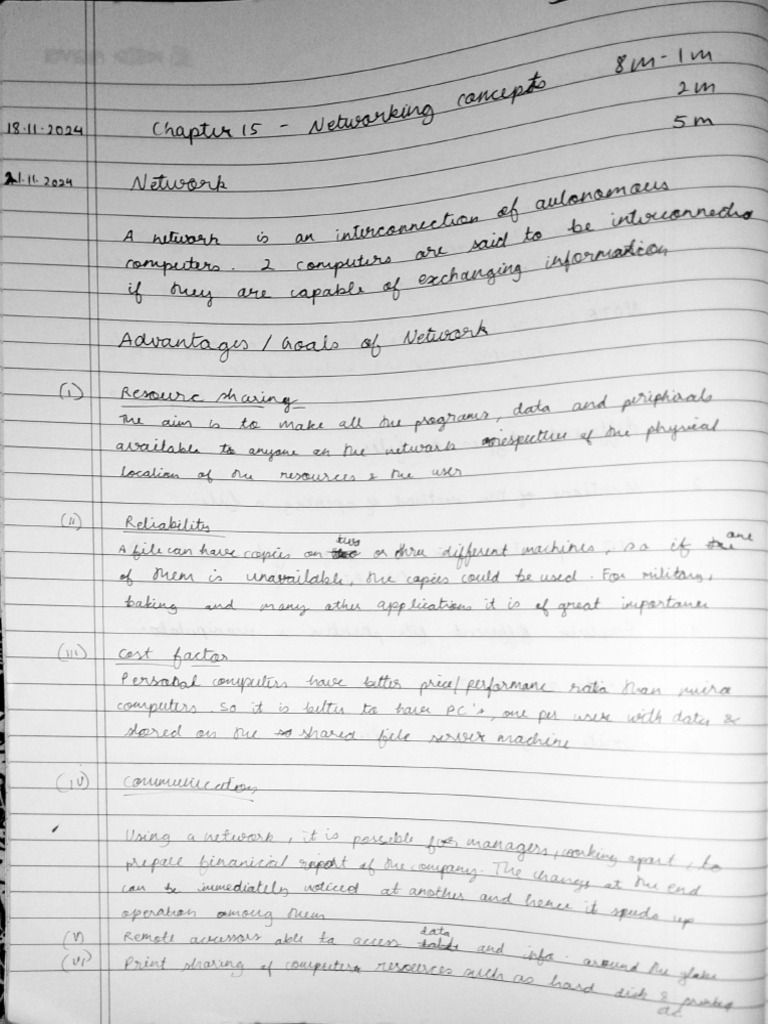 8m - 1m
2m
5m
18.11.2024 Chapter 15 - Networking concepts
21.11.2024 Network
A network is an interconnection of autonomous
computers. 2 computers are said to be interconnected
if they are capable of exchanging information
Advantages / Goals of Network
(i) Resource sharing
The aim is to make all the programs, data and peripherals
available to anyone on the network irrespective of the physical
location of the resources & the user
(ii) Reliability
A file can have copies on two or three different machines, so if one
of them is unavailable, the copies could be used. For military,
baking and many other applications it is of great importance
(iii) Cost factor
Personal computers have better price/performance ratio than micro
computers. So it is better to have PC's, one per user with data &
stored on the shared file server machine
(iv) Communication
Using a network, it is possible for managers, working apart, to
prepare financial report of the company. The changes at the end
can be immediately noticed at another and hence it speeds up
operation among them
(v) Remote accessors able to access data and info. around the globe
(vi) Print sharing of computer resources such as hard disk & printer
etc